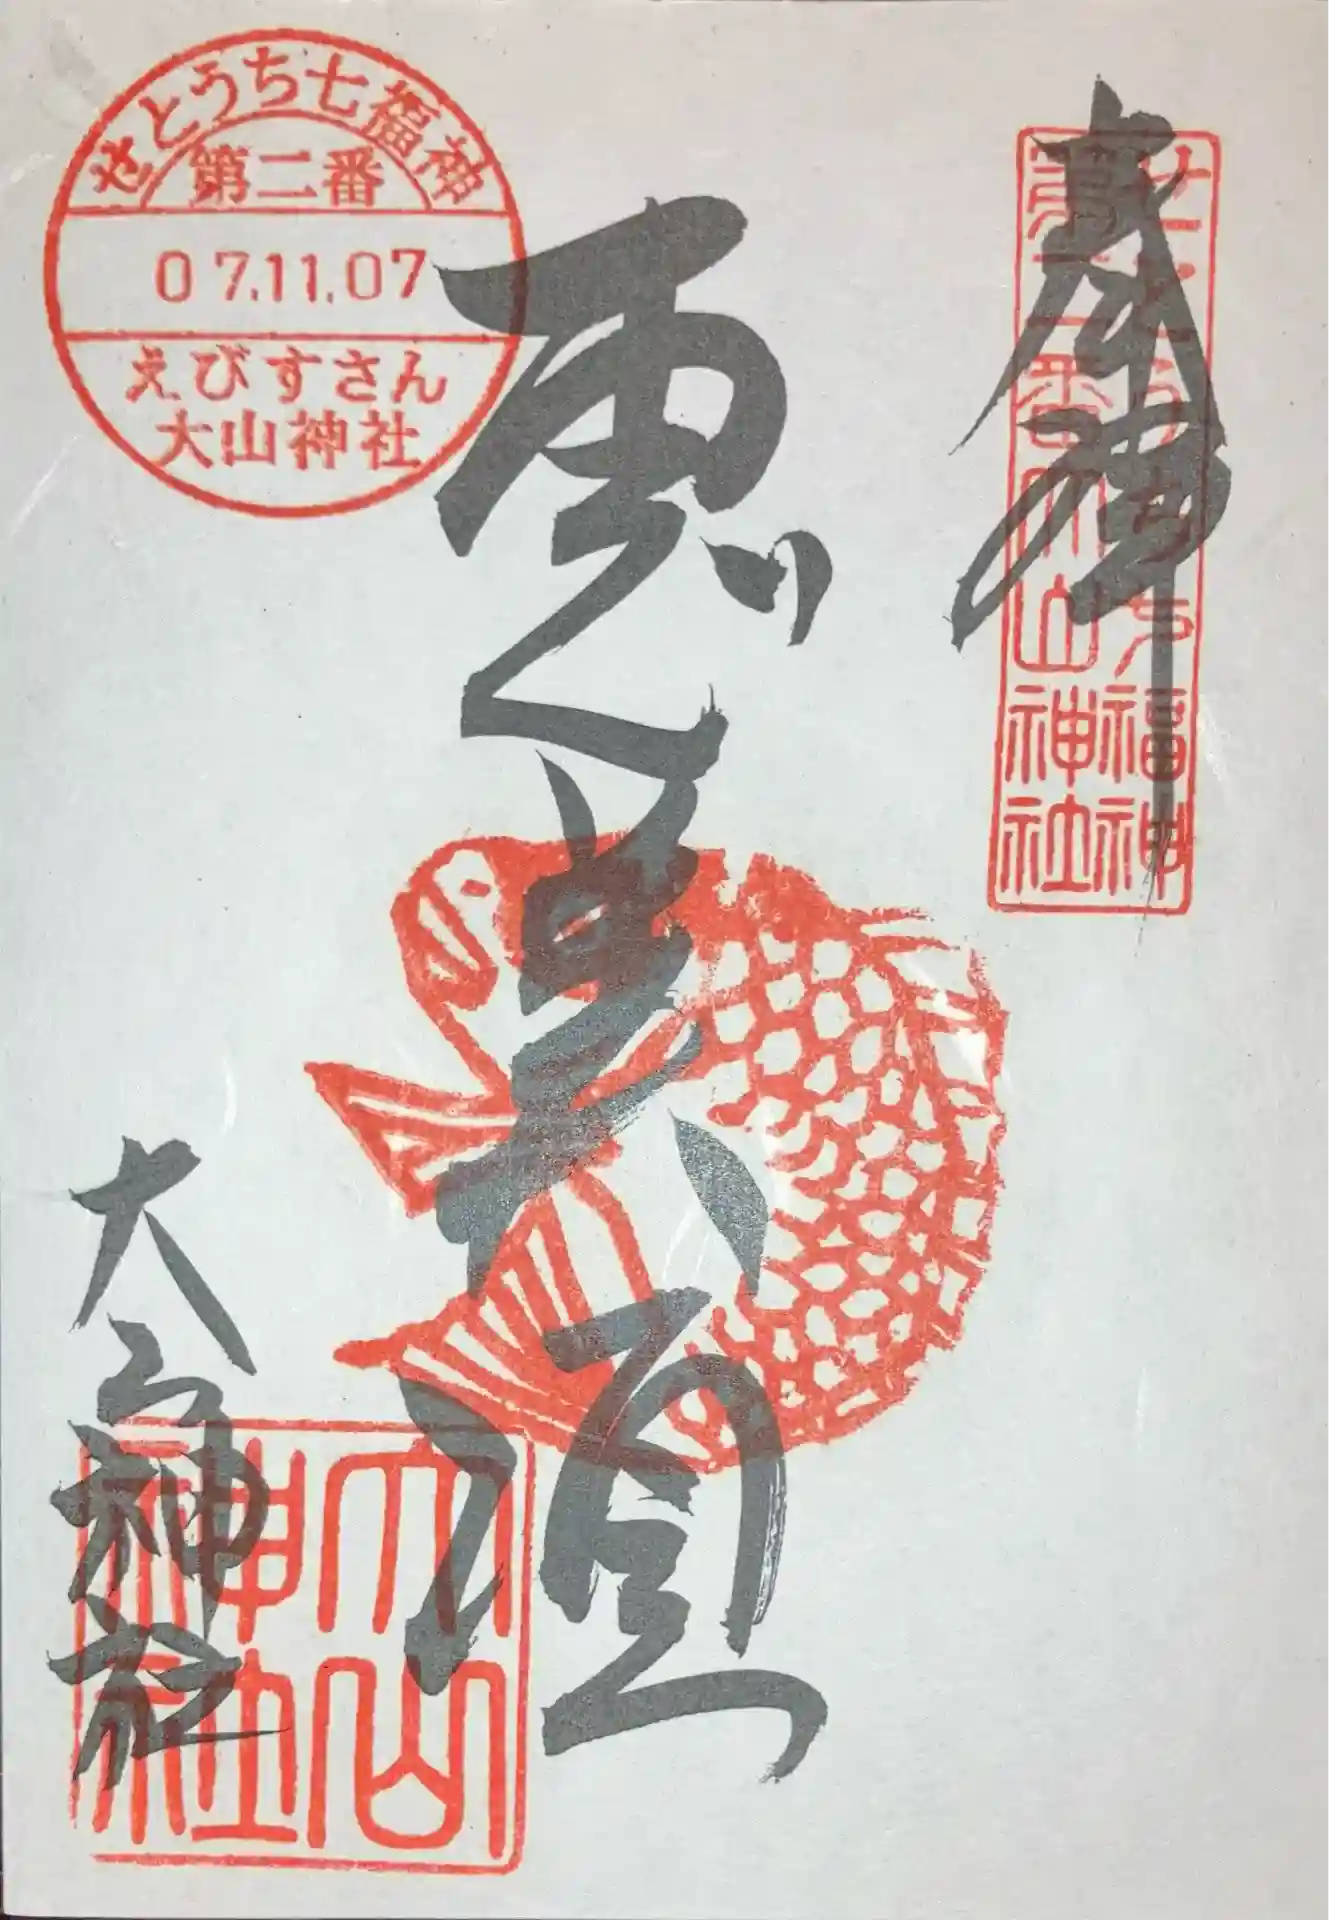 奉拝
せとうち七福神
第二番大山神社
恵美須
せとうち七福神
第二番
07.11.07
えびすさん
大山神社
大山神社
大山
神社